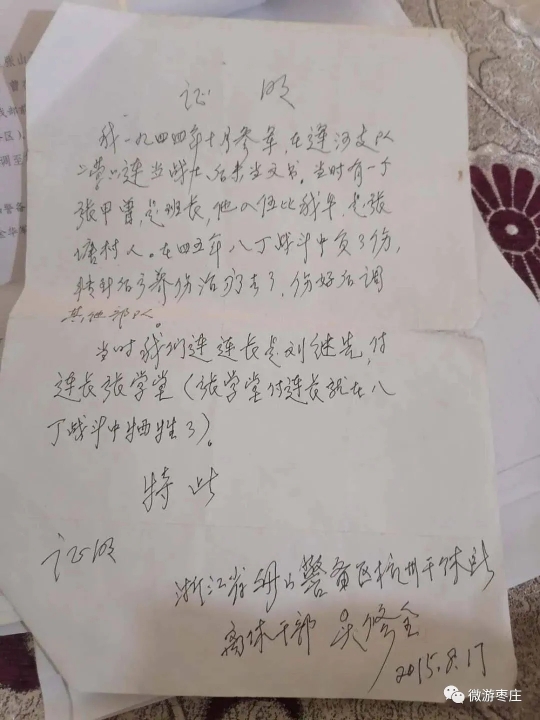 证 明
我一九四四年十月参军,在运河支队
二营六连当战士后来当文书。当时有一个
张甲曾,是班长,他入伍比我早,是张
塘村人。在四五年八丁战斗中负了伤,
转到后方养伤治疗去了,伤好后调
其他部队。
当时我们连连长是刘继先,付
连长张学堂(张学堂付连长就在八
丁战斗中牺牲了)。
特此
证明
浙江省舟山警备区杭州干休所
离休干部 吴修全
2015.8.17
微游枣庄